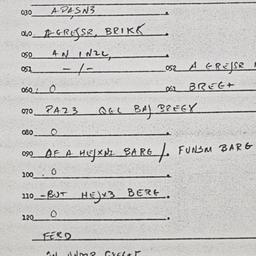 030 APASN3
040 AGRESSR, BRIKK
050 AN INZL,
051 -/- 052 A GREJSR
060 0 062 BREGt
070 PAZ3 QGL BAJ BREGY
080 0
090 AF A HEJXNZ BARG /. FUNSM BARG
100 0
110 -BUT HEJX3 BERG
120 0
FERD